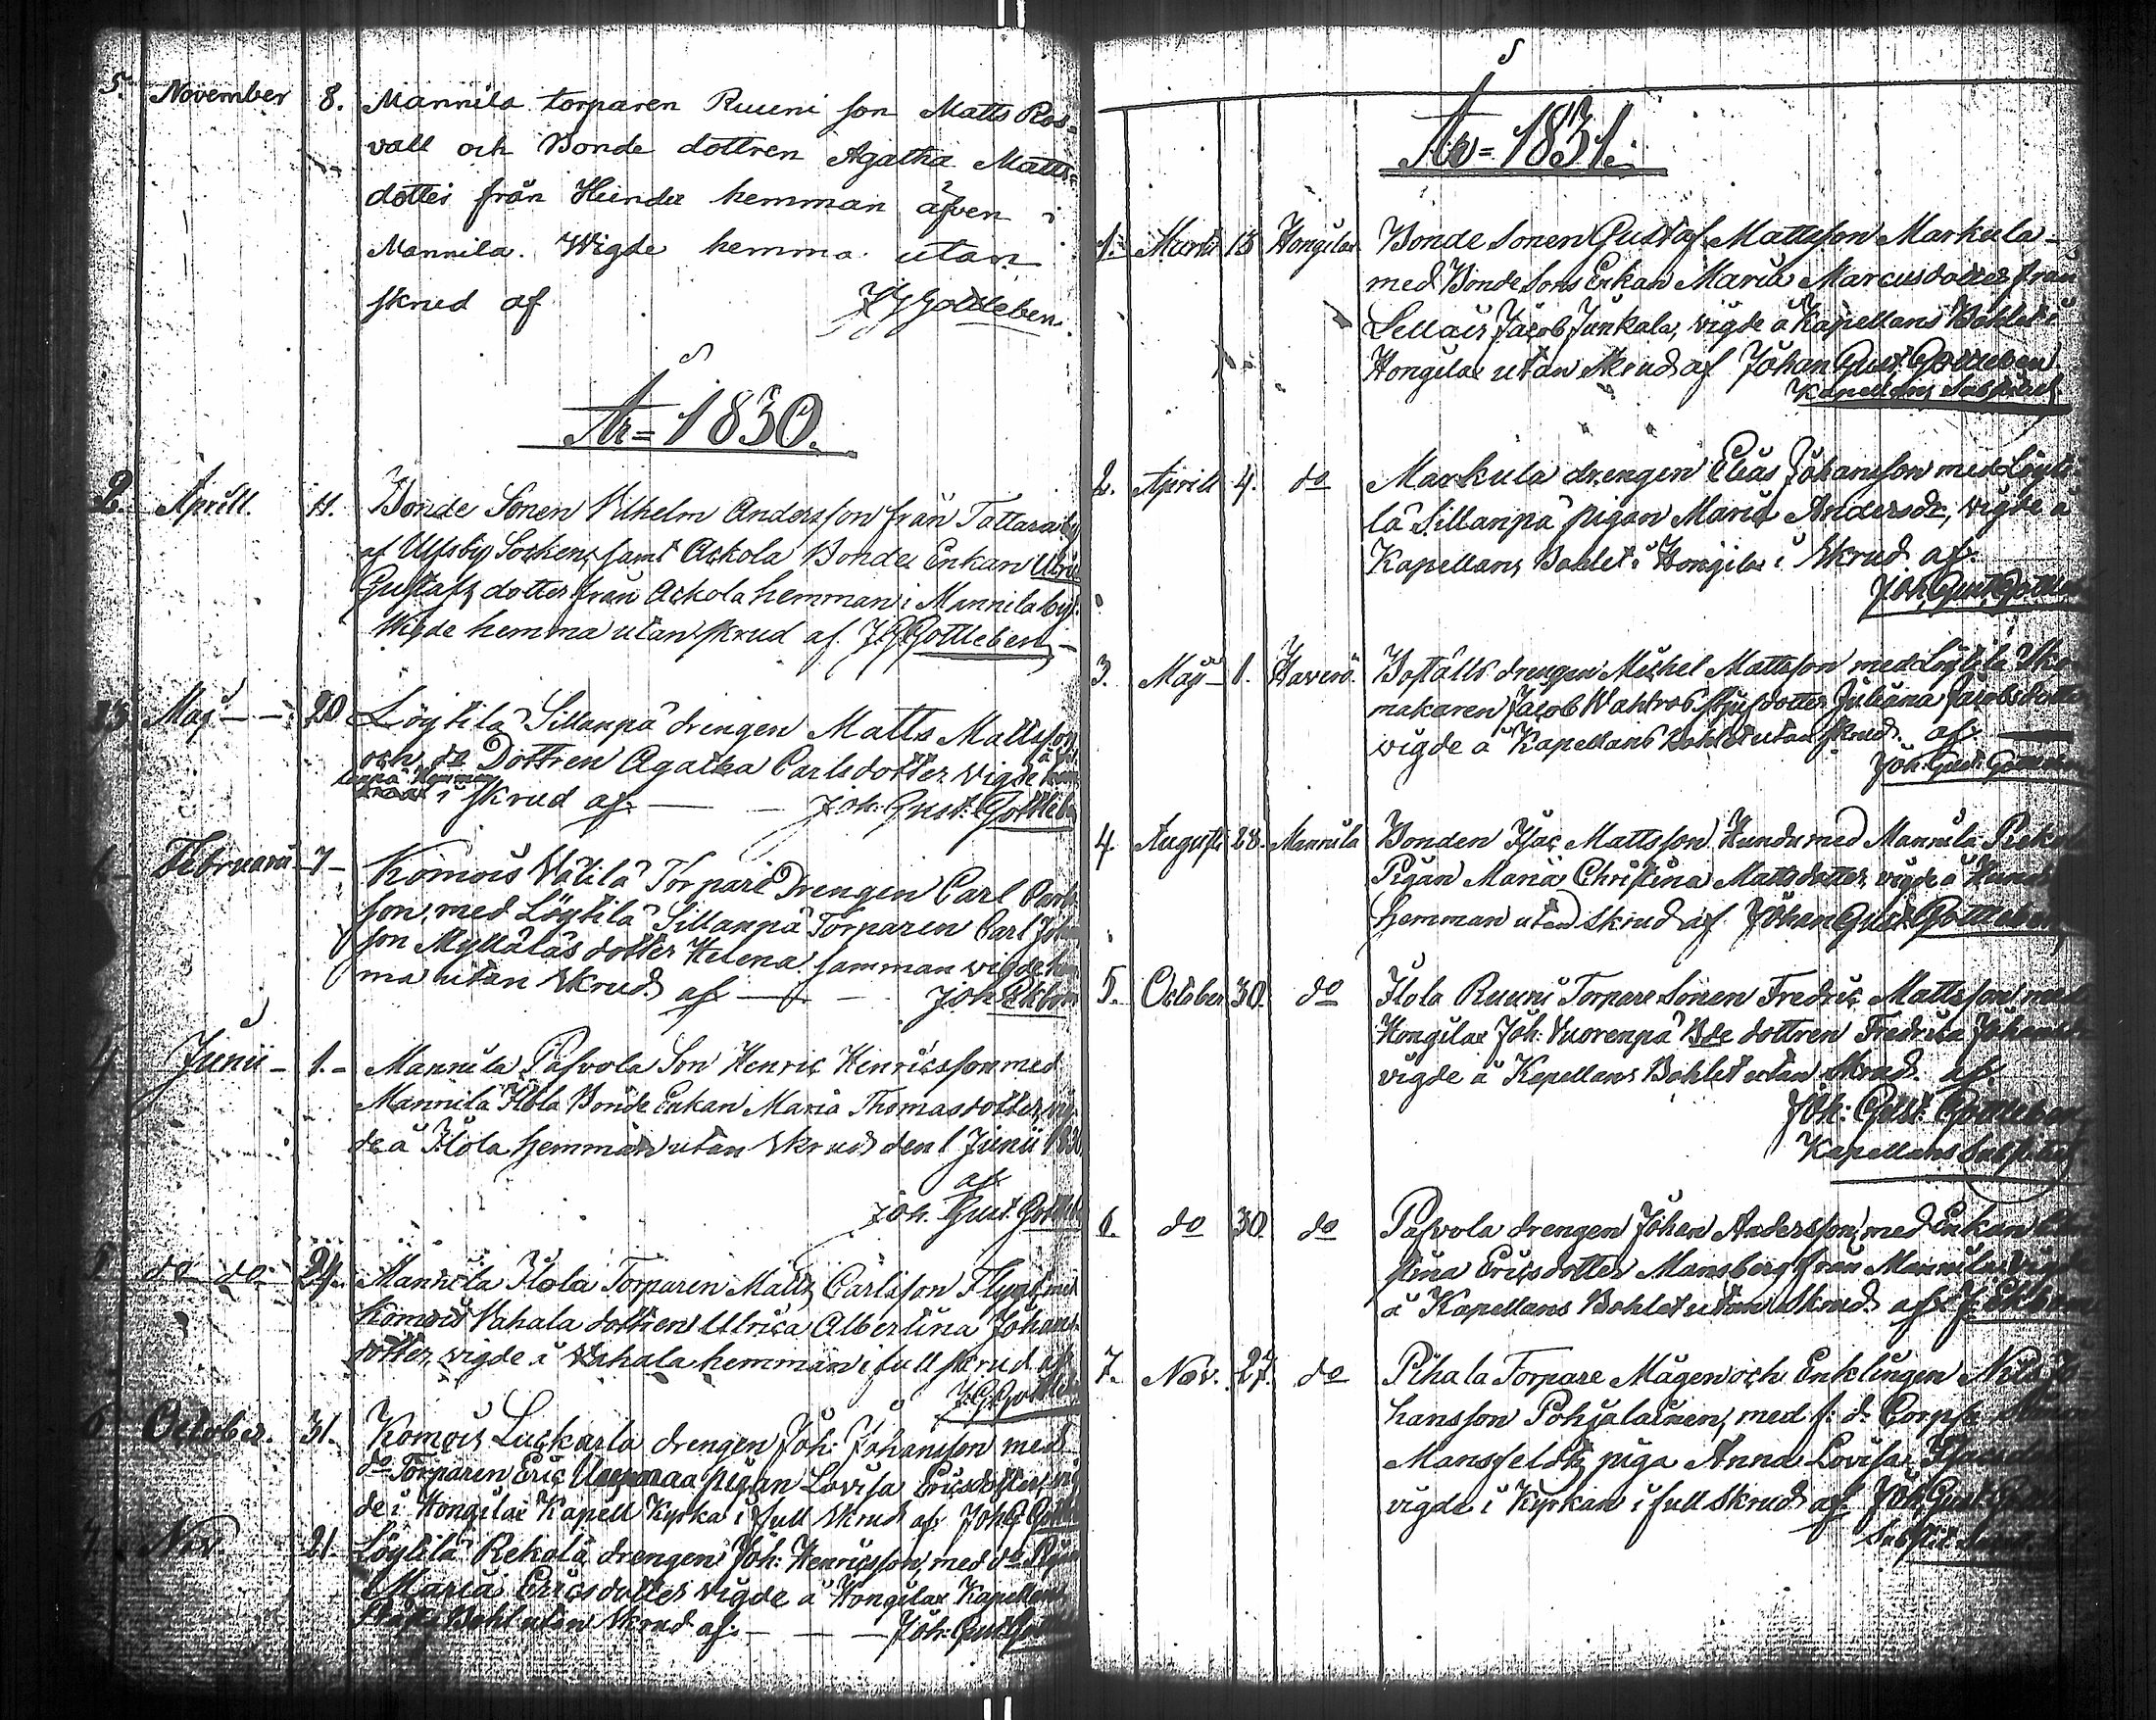 5. November 8. Mannila torparen Ruuni son Matts Ros-
vall och Bonde dottren Agatha Matts-
dotter från Heinda hemman äfven i
Mannila. Wigde hemma utan
skrud af J G Gottleben.
År = 1830.
2 Aprill. 11. Bonde Sonen Vilhelm Andersson från Tattara by
af Ulfsby Socken, samt Ackola Bonde Enkan
Gustafs dotter från Ackola hemman i Mannila by.
Wigde hemma utan skrud af J. G. Gottleben
Maij 20. Löytilä Sillanpä drengen Matts Mattsson
och do Dottren Agatha Carlsdotter Vigde
i skrud af Joh: Gust: Gottleben
Februarii 7 Komois Välilä Torpare Drengen Carl Carls-
son, med Löytilä Sillanpä Torparen Carl Johan
son Mylläläs dotter Helena samman vigde hem
ma utan Skrud af Joh Ekbom
4 Junii 1. Mannila Påfvola Son Henric Hinricsson med
Mannila Ilola Bonde Enkan Maria Thomasdotter, vig-
de å Ilola hemman utan Skrud den 1 Junii 1830
af
Joh. Gust. Gottleb
5 do do 24. Mannila Ilola Torparen Matts Carlsson Flygt med
Komois Vahala dottren Ulrica Albertina Johans
dotter, vigde å Vahala hemman i full skrud af
J. G. Gottleb
6 October. 31. Komois Luckarla drengen Joh: Johansson med
do Torparen Eric pigan Lovisa Ericsdotter, vig
de i Hongilax Kapell Kyrka i full Skrud af Joh G Gottle
Nov. 21. Löytilä Rekola drengen Joh: Henricsson, med do Pigan
Maria Ericsdotter vigde å Hongilax Kapellans
Bohl utan Skrud af Joh: Gust
År = 1831.
1. Martii 13 Hongilax Bonde Sonen Gustaf Mattsson Markula
med Bonde Sons Enkan Maria Marcusdotter från
Sellais Jacob Junkala, vigde å Kapellans Bohlet i
Hongilax utan Skrud af Johan Gust. Gottleben
Kapellans Substitut
2. Aprill 4. do Markula drengen Elias Johansson med Löyti-
lä Sillanpä pigan Maria Andersdr, vigde å
Kapellans Bohlet i Hongilax i Skrud af
Joh. Gust. Gottle
3. Maij 1. Haverö Boställs drengen Michel Mattsson med Löytilä Sko
makaren Jacob Wahlros styfdotter Juliana Jacobsdotter
vigde å Kapellans Bohlet utan skrud af
Joh. Gust. Gottleben
4. Augusti 28. Mannila Bonden Isac Mattsson Hunda med Mannila Reko
Pigan Maria Christina Mattsdotter, vigde å Hunda
hemman utan Skrud af Johan Gust. Gottleben
5. October 30. do Ilola Ruuni Torpare Sonen Fredric Mattsson med
Hongilax Joh: Vuorenpä Bde dottren Fredrica Johans
vigde å Kapellans Bohlet utan Skrud af
Joh: Gust: Gottleben
Kapellans Substitut
6. do 30. do Påfvola drengen Johan Andersson, med Enkan Chri
stina Ericsdotter Mansberg från Mannila vigde
å Kapellans Bohlet utan Skrud af J. Ekbom
7. Nov. 27. do Pihala Torpare Mågen och Enklingen Nils Jo
hansson Pohjalainen, med f: d: Corps.
Mansfeldts piga Anna Lovisa
vigde i Kyrkan i full Skrud af Joh Gust
Substit.